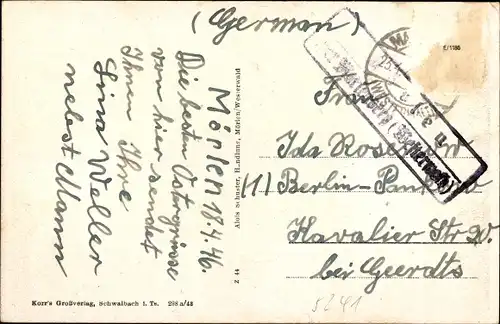 (German)
Mörlen 18.4.46.
Die besten Ostergrüsse
von hier sendet
Ihnen Ihre
Lina Weller
nebst Mann
Alois Schuster, Handlung, Mörlen/Westerwald
Z 44
Korr's Großverlag, Schwalbach i. Ts. 298 a/43
E/1186
(Westerwald)
Frau
Ida
(1) Berlin-Pankow
Kavalier Str.
bei Geerdts